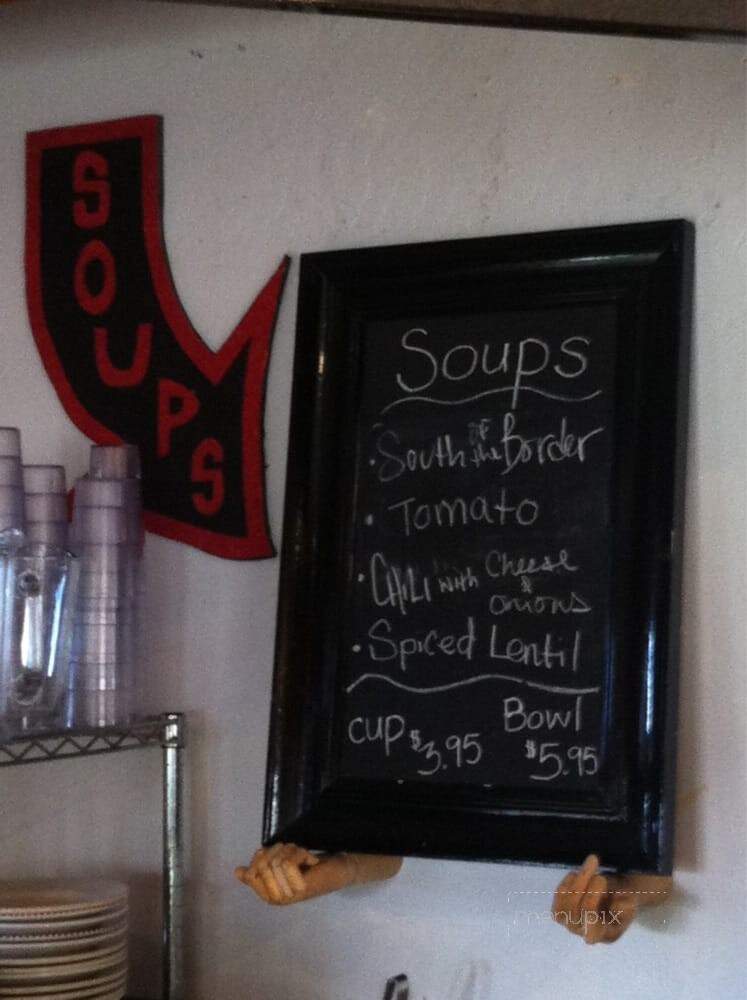 SOUPS
Soups
• South OF the Border
• Tomato
• CHILI with Cheese & onions
• Spiced Lentil
cup $3.95
Bowl $5.95
menupix